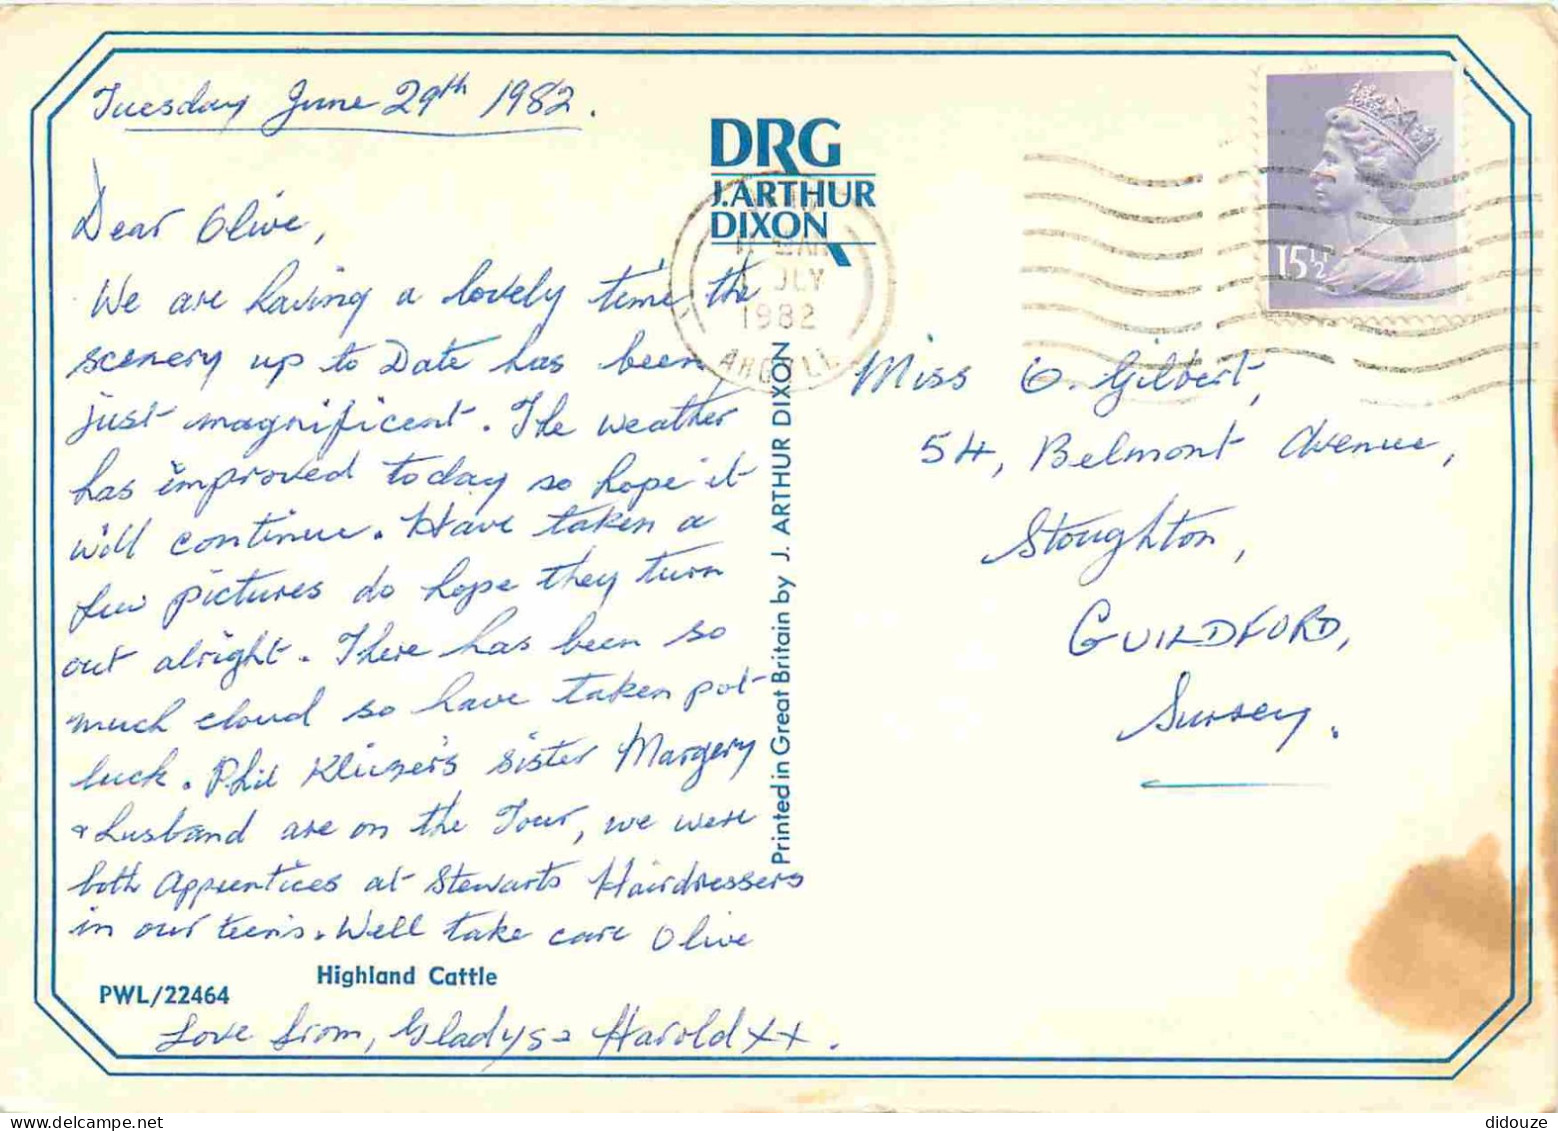 Tuesday June 29th 1982.
Dear Olive,
We are having a lovely time the
scenery up to Date has been
just magnificent. The weather
has improved today so hope it
will continue. Have taken a
few pictures do hope they turn
out alright. There has been so
much cloud so have taken pot-
luck. Phil sister Margery
& husband are on the Tour, we were
both Apprentices at Stewarts Hairdressers
in our teens. Well take care Olive
Highland Cattle
PWL/22464
Love from, Gladys & Harold xx.
DRG
J.ARTHUR
DIXON
JLY
1982
ARGYLL
Printed in Great Britain by J. ARTHUR DIXON
15½
Miss O. Gilbert,
54, Belmont Avenue,
Stoughton,
GUILDFORD,
Surrey.
didouze